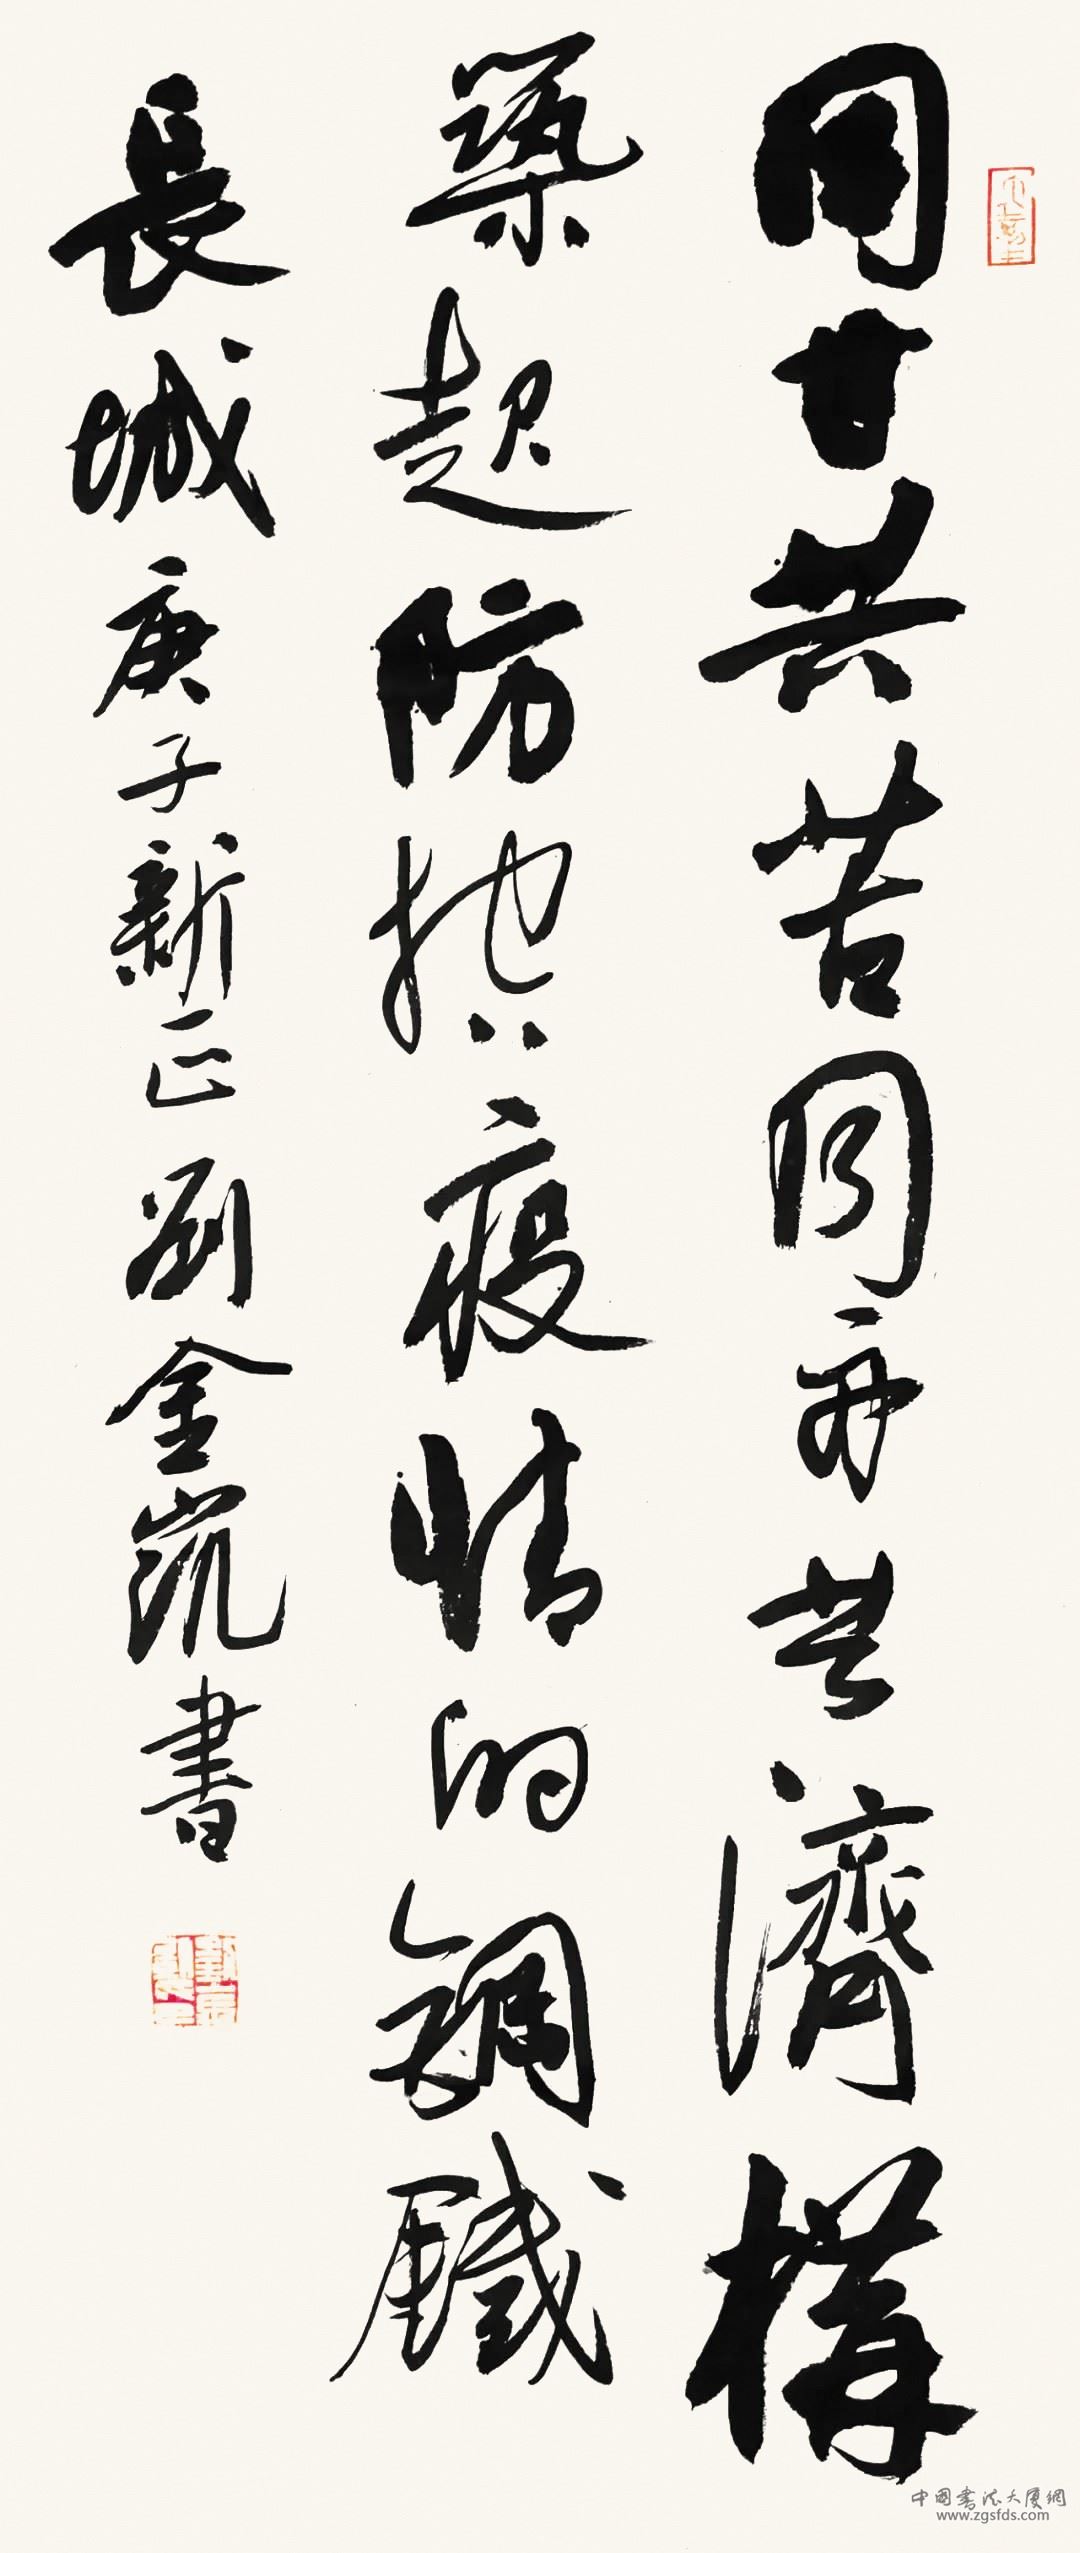 同甘共苦同舟共濟構
築起防控疫情的鋼鐵
長城
庚子新正劉金凱書
中国書法大厦網
www.zgsfds.com